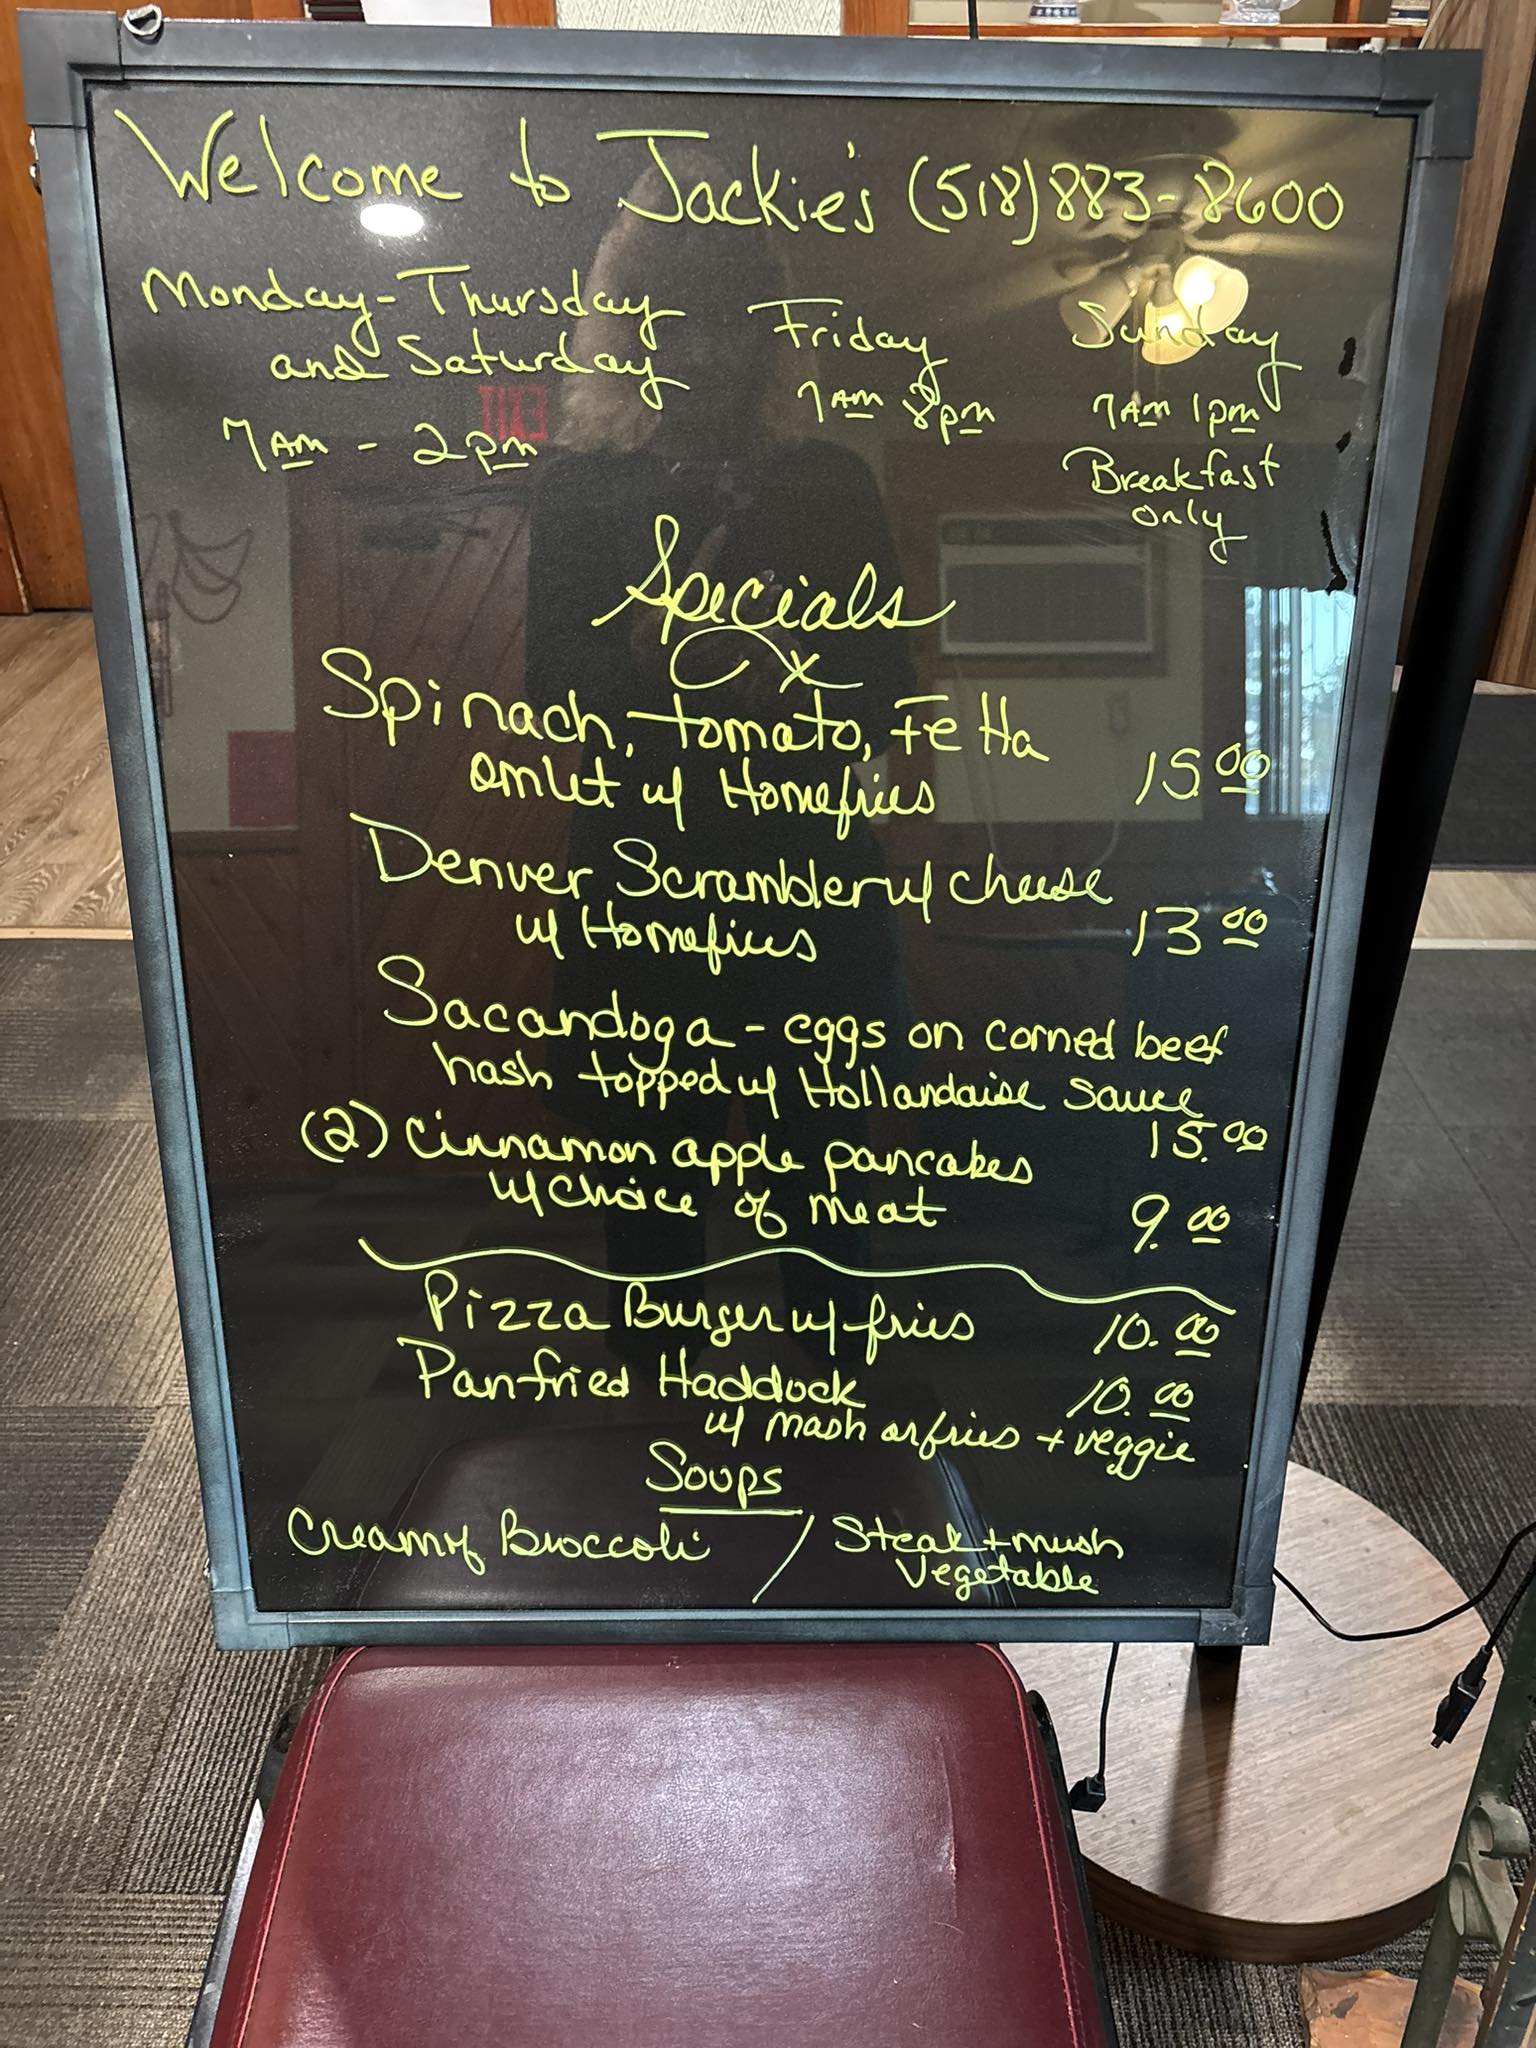 Welcome to Jackie's (518) 883-8600
Monday-Thursday
and Saturday
7AM - 2pm
Friday
7AM 8pm
Sunday
7AM 1pm
Breakfast
only
Specials
Spinach, tomato, Fetta
omlet w/ Homefries 15.00
Denver Scrambler w/ cheese
w/ Homefries 13.00
Sacandoga - eggs on corned beef
hash topped w/ Hollandaise sauce
15.00
(2) cinnamon apple pancakes
w/ choice of meat 9.00
Pizza Burger w/ fries 10.00
Panfried Haddock 10.00
w/ mash or fries + veggie
Soups
Creamy Broccoli / Steak + mush
Vegetable
EXIT